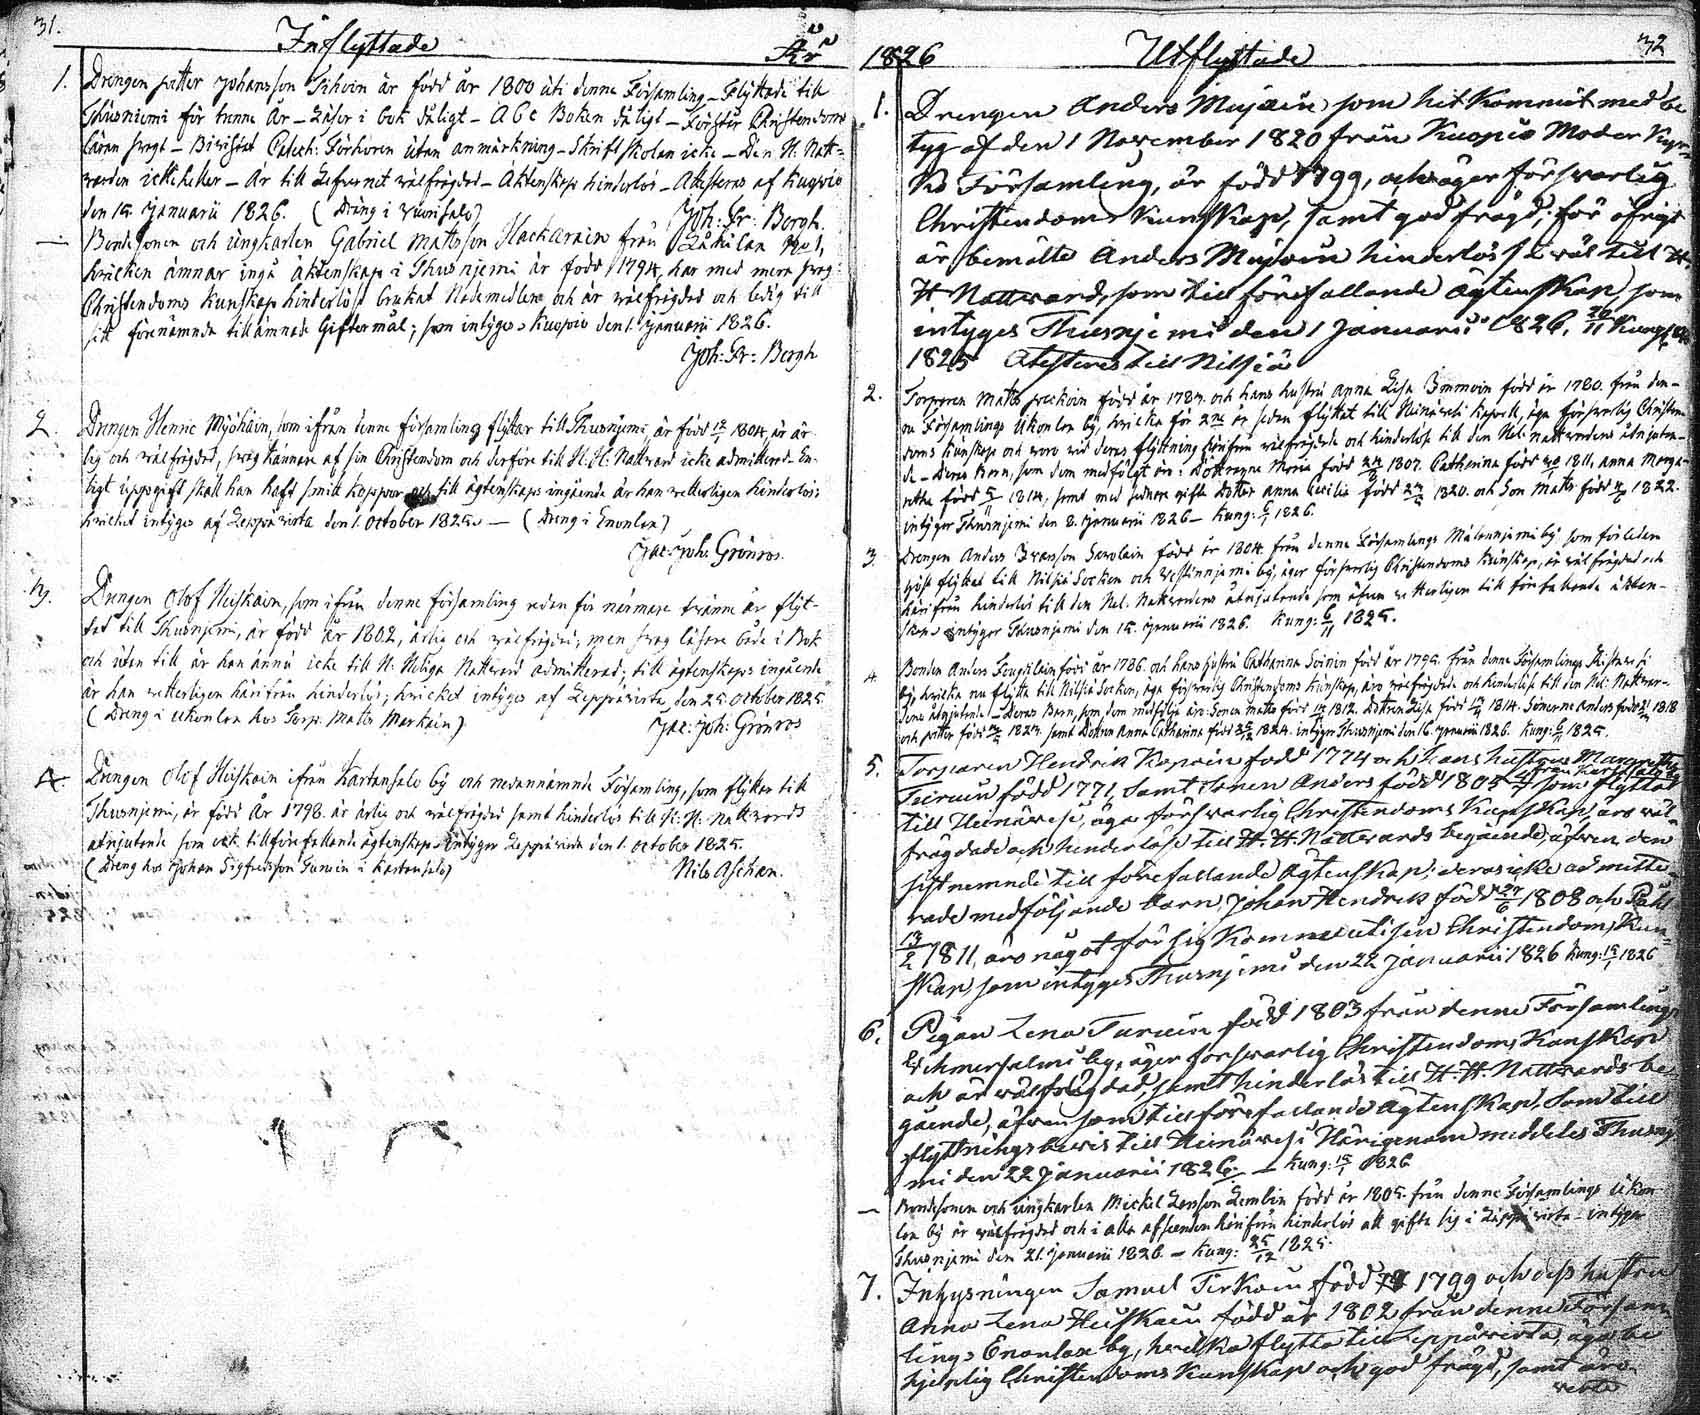 31.
Inflyttade
År
1. Drengen petter Johansson Tihvin är född år 1800 uti denna Församling – Flyttade till
Thusniemi för tvenne År – Läser i bok dåligt – Abc Boken dåligt – Förstår Christendoms
läran svagt – Bivistat Catech: Förhören utan anmärkning – Skriftskolan icke – Den H. Natt-
varden icke heller – Är till Lefvernet välfrägdad – Äktenskaps hinderlös – Attesteras af Kuopio
den 15 Januarii 1826. (Dräng i Vuorisalo)
Joh: Fr: Bergh.
– Bondesonen och ungkarlen Gabriel Mattsson Hackarain från No 1,
hvilken ämnar ingå äktenskap i Thusnjemi är född 1794, har med mera svag
Christendoms kunskap hinderlöst brukat Nådemedlen och är välfrägdad och ledig till
sitt förenämnde tillämnade Giftermål; som intygas Kuopio den 1. Januarii 1826.
Joh: Fr: Bergh
2. Drengen Henric Myöhäin, som ifrån denne församling flyttar till Thusnjemi, är född 1804, är är-
lig och välfrägdad, svag kännare af sin Christendom och derföre till H. H. Nattvard icke admitterad. En-
ligt uppgift skall han haft smitt koppor och till ägtenskaps ingående är han vetterligen hinderlös;
hvilket intygas af Leppävirta den 1. October 1825. – (Dreng i Enonlax)
Jac: Joh: Grönros.
3. Drengen Olof Heiskain, som ifrån denne församling redan för närmare tvänne år flyt-
tat till Thusnjemi, är född år 1802, ärlig och välfrägdad; men svag läsare både i Bok
och utan till är han ännu icke till H: Heliga Nattvard admitterad; till ägtenskaps ingående
är han vetterligen härifrån hinderlös; hvilket intygas af Leppävirta, den 25 October 1825.
(Dreng i Ukonlax hos Torp. Matts Markain)
Jac: Joh: Grönros
4. Drengen Olof Heiskain ifrån Kartansalo by och medannämnde Församling, som flyttar till
Thusnjemi, är född År 1798. är ärlig och välfrägdad samt hinderlös till H: H: Nattvards
åtnjutande som ock till förefallande ägtenskap. Intygar Leppävirta den 1. October 1825.
(Dreng hos Johan Sigfredsson Turuin i Kartansalo)
Nils Aschan.
1826
Utflyttade
32
1. Drengen Anders Mujuin som hit kommit med be
tyg af den 1 November 1820 från Kuopio Moder Kyr-
ko Församling, är född 1799, och äger försvarlig
Christendoms Kunskap, samt god frägd; för öfrigt
är bemälte Anders Mujuin hinderlös så väl till H.
H Nattvard, som till förefallande Ägtenskap, som
intyges Thusnjemi den 1 Januarii 1826. 20/11 Kung:
1825 Atesteres till Nilsiä
2. Torparen Matts född år 1787. och hans hustru Anna Lisa Immoin född år 1780. från den-
na Församlings Ukonlax by, hvilka för 2ne år sedan flyttat till Heinävesi Kapell, äga försvarlig Christen-
doms kunskap och voro vid deras flyttning härifrån välfrägdade och hinderlöse till den Hel. nattvardens åtnjutan-
de – Deras Barn, som dem medföljt äro: Döttrarne Maria född 1807. Catharina född 1811, Anna Marga-
retha född 1814, samt med sednare gifte Dotter Anna Cecilia född 1820. och Son Matts född 1822.
intygar Thusnjemi den 8. Januarii 1826 – Kung: 6/1 1826.
3. Drengen Anders Ivarsson Savolain född år 1804 från denna Församlings by som förleden
höst flyttat till Nilsiä Socken och Vestinnjemi by, äger försvarlig Christendoms kunskap, är välfrägdad och
härifrån hinderlös till den Hel. Nattvardens åtnjutande som äfven vetterligen till förefallande äkten-
skap intygar Thusnjemi den 15. Januarii 1826. Kung: 6/11 1825.
4. Bonden Anders född år 1786. och hans hustru Catharina Soinin född år 1795. från denna Församlings
by, hvilka nu flytta till Nilsiä Socken, äga försvarlig Christendoms kunskap, äro välfrägdade och hinderlöse till den Hel: Nattvar-
dens åtnjutande – Deras Barn, som dem medfölja äro: Sonen Matts född 1812. Dottren Lisa född 1814. Sönerne Anders född 1818
och petter född 1827. samt Dottren Anna Catharina född 1824. intygar Thusnjemi den 16. Januarii 1826. Kung: 6/11 1825.
5. Torparen Hendrik Kopoin född 1774 och hans hustru Margretha
Teiruin född 1771, samt Sonen Anders född 1805 ifrån Kartansalo by som flyttat
till Heinävesi, äga försvarlig Christendoms Kunskap, äro väl-
frägdade och hinderlöse till H. H. Nattvards begående, äfven den
sistnemnde till förefallande Ägtenskap; deras icke admitte-
rade medföljande barn, Johan Hendrik född 27/6 1808 och Påhl
13/2 1811, äro något för sig komne uti sin Christendoms Kun-
skap, som intygges Thusnjemi den 22 Januarii 1826 Kung: 15/1 1826
6. Pigan Lena Turuin född 1803 från denna Församlings
by, äger försvarlig Christendoms Kunskap
och är välfrägdad, samt hinderlös till H. H. Nattvards be-
gående, äfven som till förefallande Ägtenskap, som till
flyttningsbevis till Heinävesi Härigenom meddeles Thusnje-
mi den 22 Januarii 1826. – Kung: 15/1 1826
– Bondesonen och ungkarlen Mickel Larsson Lemlin född år 1805. från denna Församlings Ukon-
lax by är välfrägdad och i alla afseenden härifrån hinderlös att gifta sig i Leppävirta – intygar
Thusnjemi den 21. Januarii 1826 – Kung: 25/12 1825.
7. Inhysningen Samuel Tirkoin född 1799 och dess hustru
Anna Lena Heiskain född år 1802 från denna Försam-
lings Enonlax by, hvilka flytta till Leppävirta, äga be
hjelplig Christendoms Kunskap och god frägd, samt äro
verte